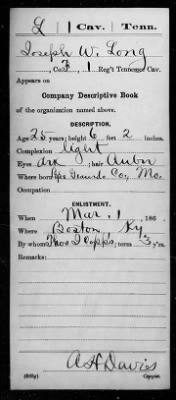 L | 1 | Cav. | Tenn.
Joseph W. Long
, Co. 3, 1 Reg't Tennessee Cav.
Appears on
Company Descriptive Book
of the organization named above.
DESCRIPTION.
Age 25 years; height 6 feet 2 inches.
Complexion light
Eyes ; hair Auburn
Where born Co., Mo.
Occupation
ENLISTMENT.
When Mar. 1, 186 .
Where Boston, Ky
By whom Thos D Capps; term 3 y'rs.
Remarks:
A H Davis
Copyist.